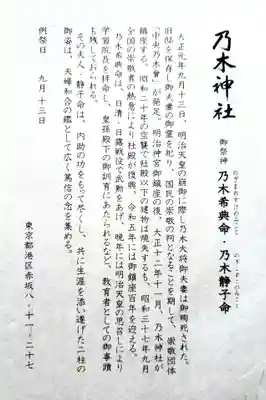 乃木神社
御祭神 乃木希典命・乃木静子命
大正元年九月十三日、明治天皇の崩御に際し乃木大将御夫妻は御殉死された。
旧邸を保存し御夫妻の御霊を祀り、国民の崇敬の祠となることを期して、崇敬団体
「中央乃木會」が発足。明治神宮御鎮座の後、大正十二年十一月、乃木神社が
鎮座する。昭和二十年の空襲で社殿以下の建物は焼失するも、昭和三十七年九月
全国の崇敬者の熱意により社殿が復興。令和五年には御鎮座百年を迎える。
乃木希典命は、日清・日露戦役で武勲をあげ、晩年には明治天皇の思召しにより
学習院長を拝命し、皇孫殿下の御訓育にあたられるなど、教育者としての御事蹟
も残しておられる。
その夫人・静子命は、内助の功をもって尽くし、共に生涯を添い遂げた二柱の
御姿は、夫婦和合の鑑として広く篤信の念を集める。
例祭日 九月十三日
東京都港区赤坂八-十一-二十七